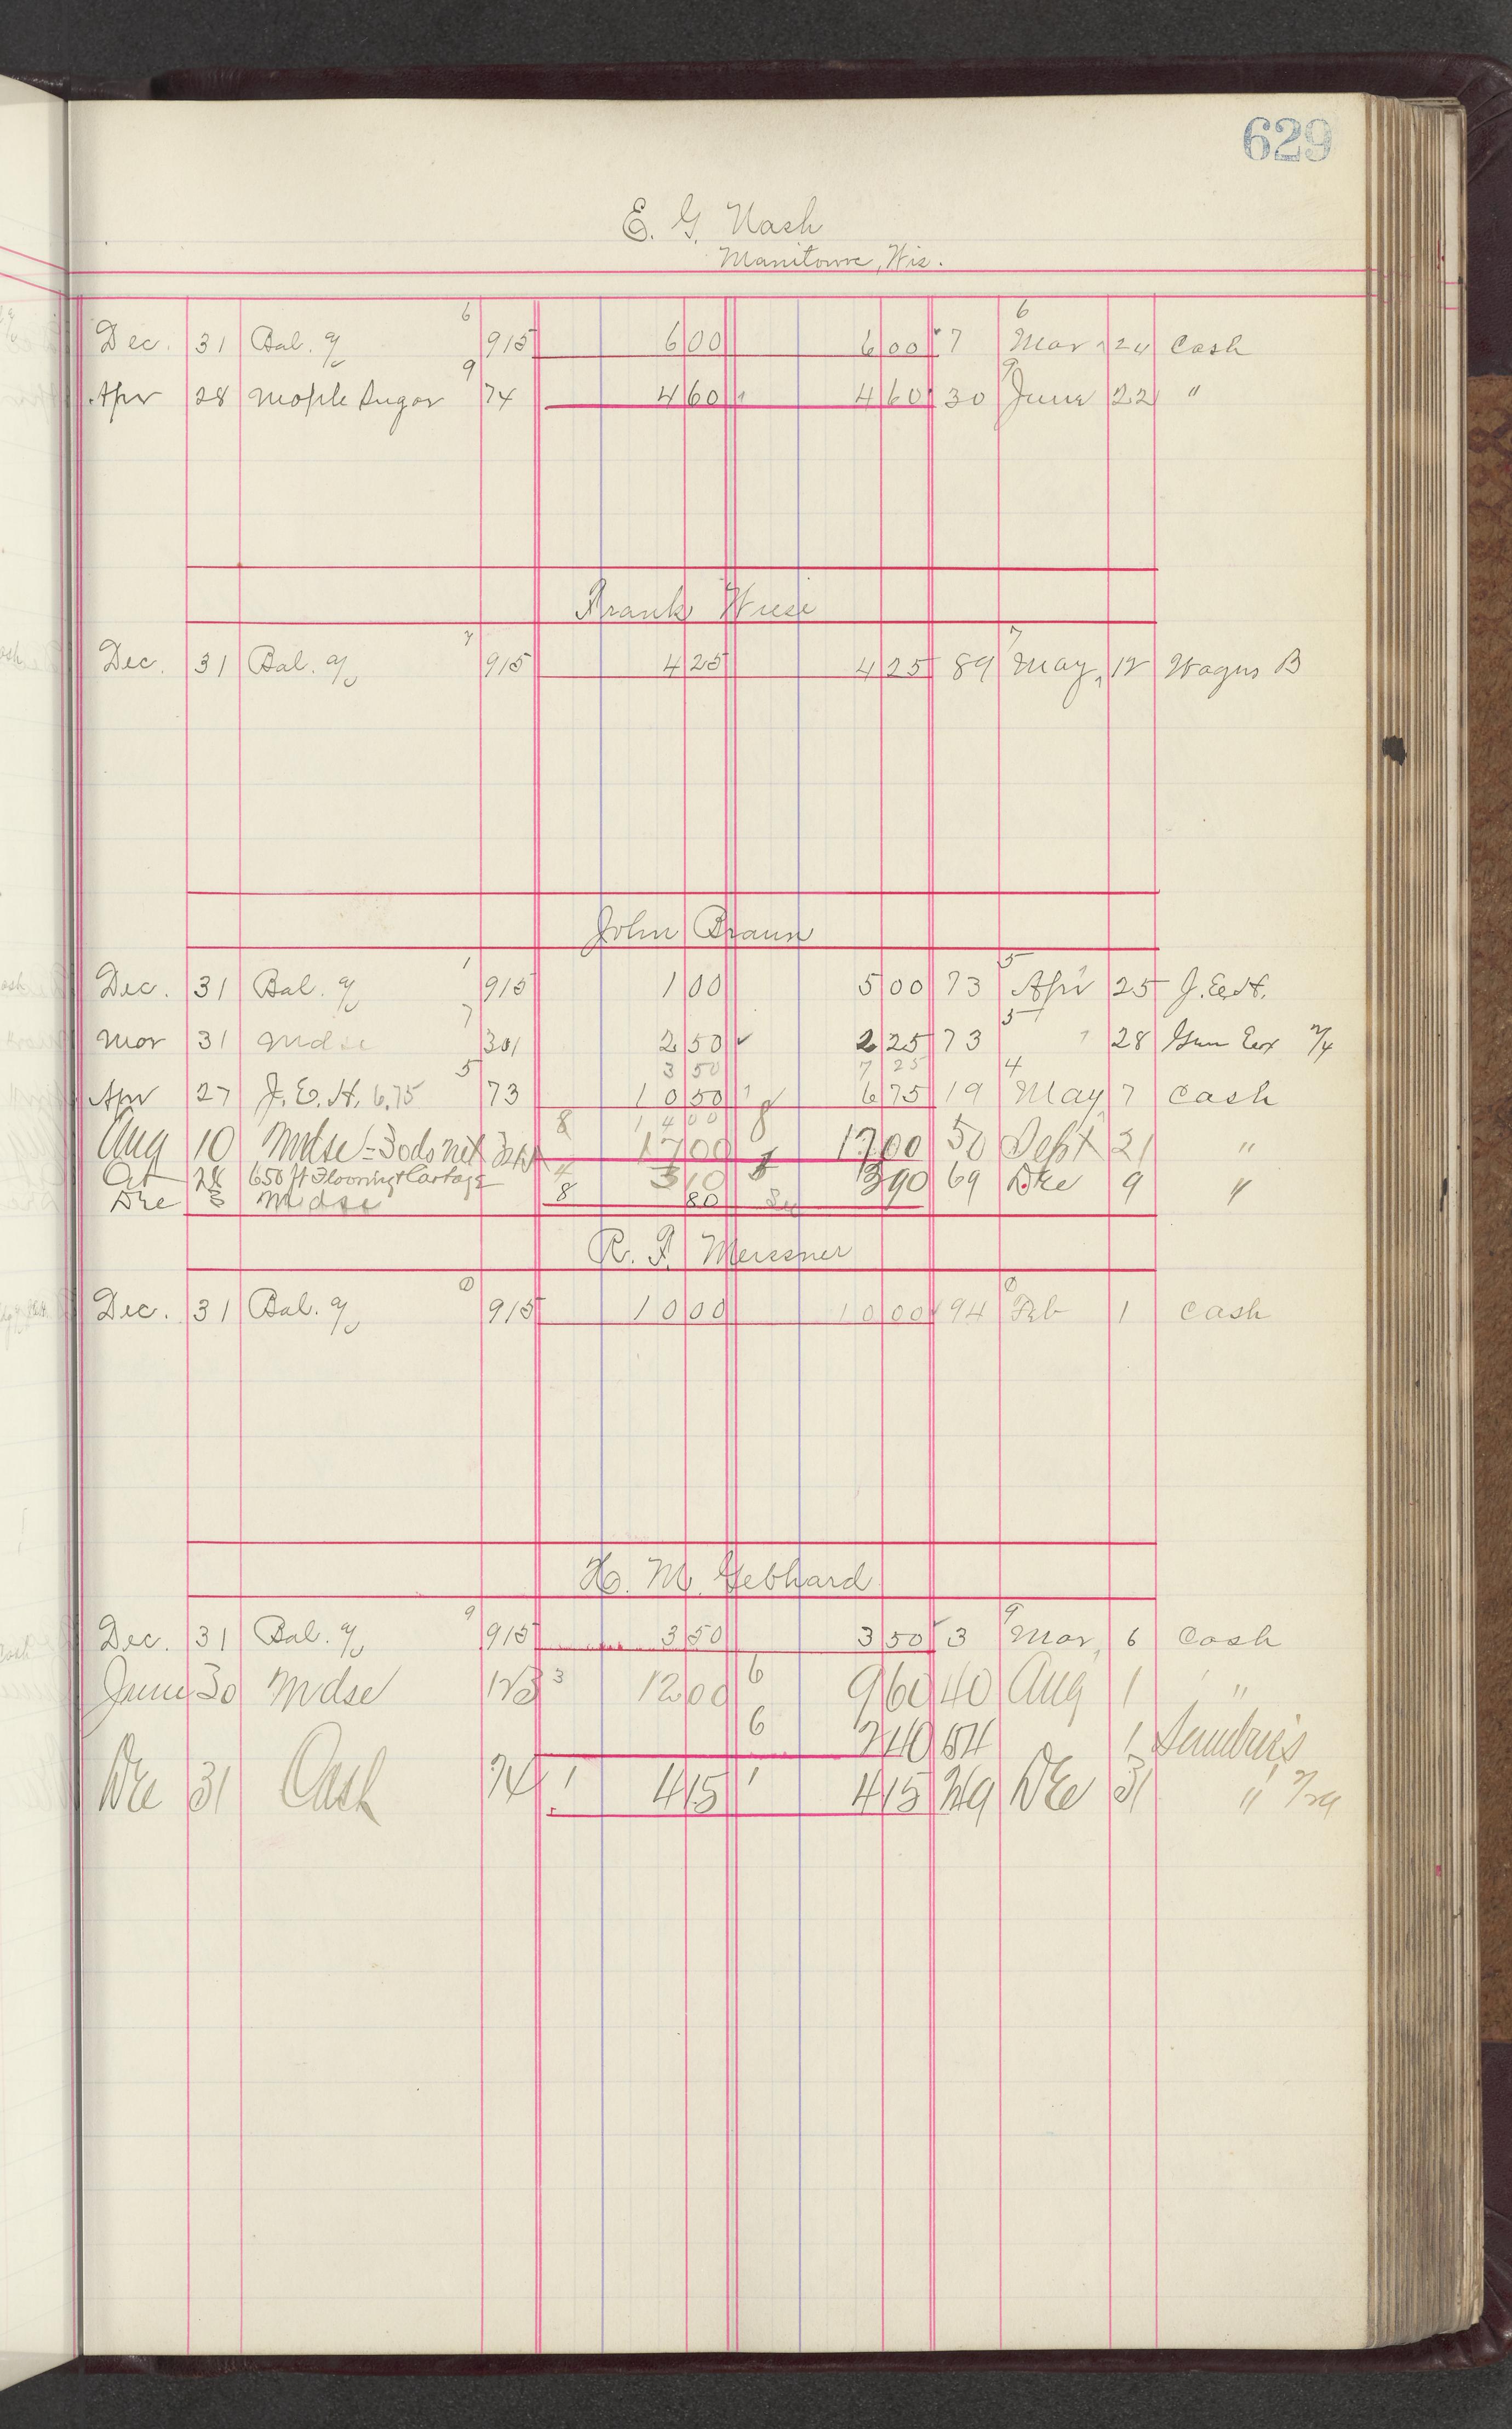 629
E. G. Nash
Manitowoc, Wis.
6 6
Dec. 31 Bal. 915 6 00 6 00 7 Mar 24 Cash
9 9
Apr 28 Maple Sugar 74 4 60 4 60 30 June 22 "
Frank Wiese
7 7
Dec. 31 Bal. 915 4 25 4 25 89 May 12 Wages B
John Braun
1 5
Dec. 31 Bal. 915 1 00 5 00 73 Apr 25 J.E.H.
7 5
Mar 31 Mdse 301 2 50 ✓ 2 25 73 " 28 Gen Ex
3 50 7 25
5 4
Apr 27 J. E. H. 6.75 73 10 50 6 75 19 May 7 Cash
8 14 00 8
Aug 10 Mdse 17 00 17 00 50 Sept 21 "
Oct 24 650 ft Flooring + Cartage 4 3 10 3 90 69 Dec 9 "
Dec 3 Mdse 8 80
R. F. Meissner
Dec. 31 Bal. 915 10 00 10 00 94 Feb 1 Cash
H. M. Gebhard
9 9
Dec. 31 Bal. 915 3 50 3 50 3 Mar 6 Cash
June 30 Mdse 123 3 12 00 6 9 60 40 Aug 1 "
6 2 40 54 1 Sundries
Dec 31 Cash 74 1 4 15 1 4 15 249 Dec 31 "